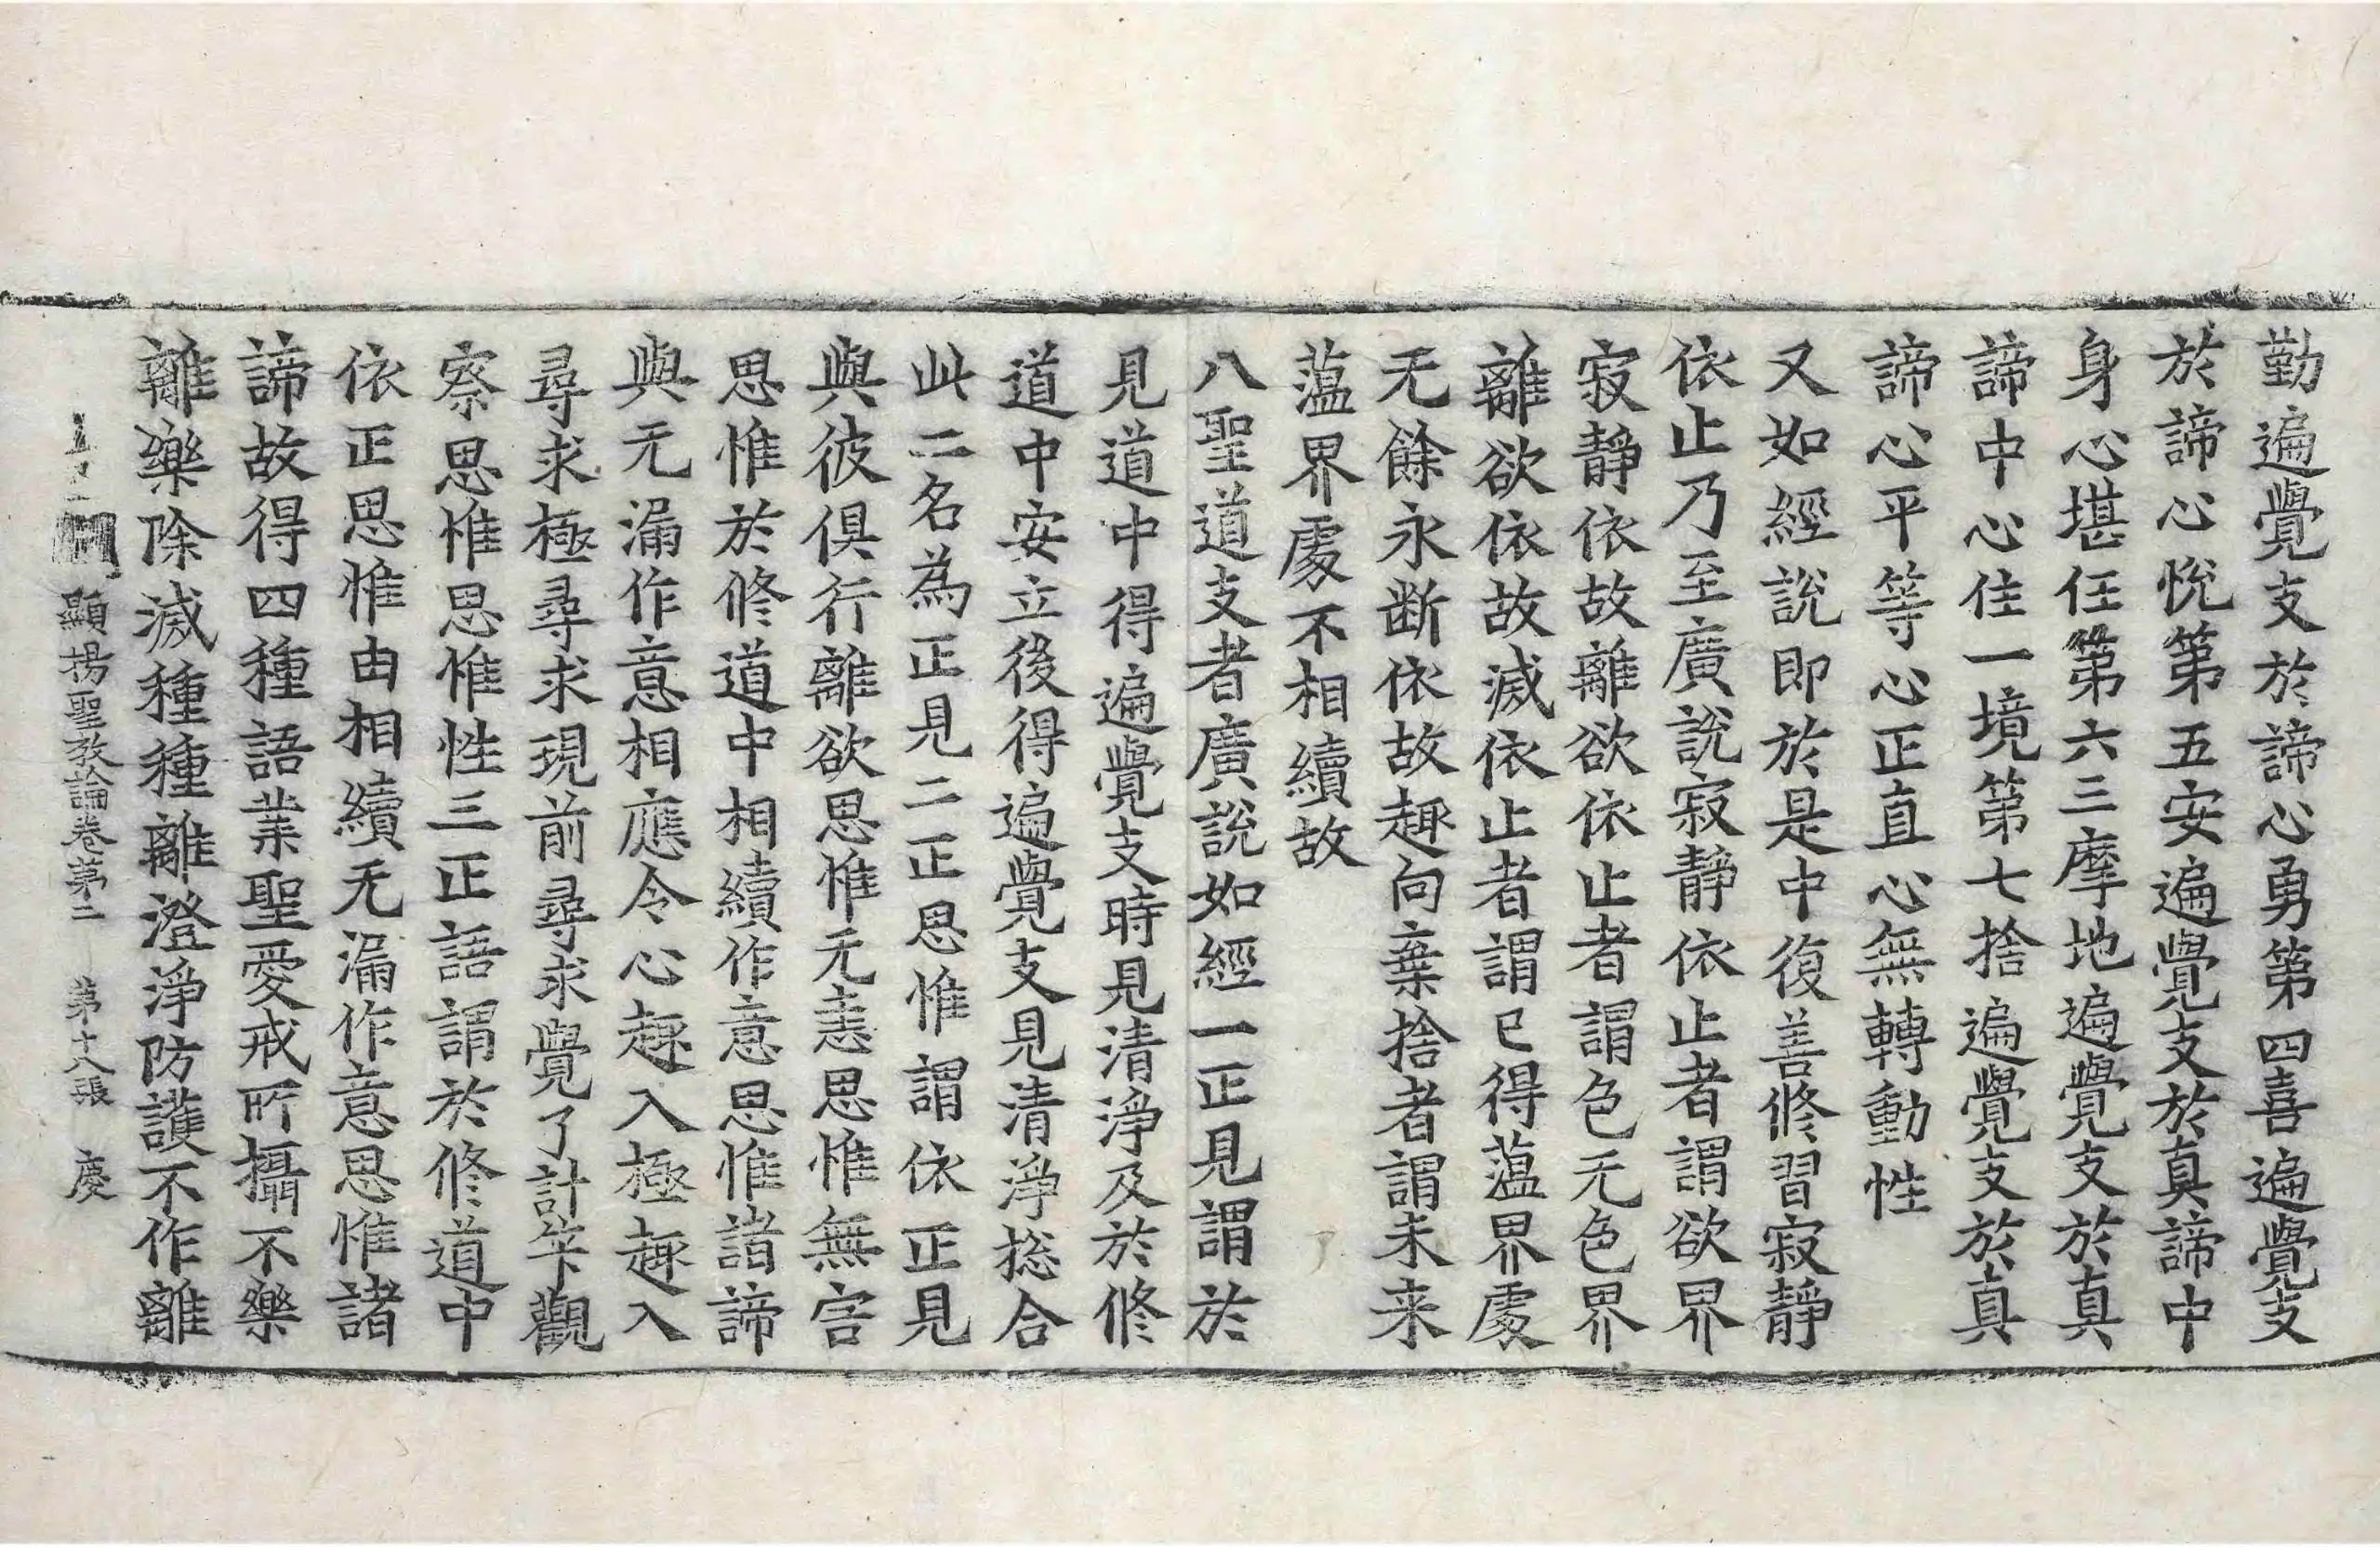 勤遍覺支於諦心勇第四喜遍覺支
於諦心悅第五安遍覺支於真諦中
身心堪任第六三摩地遍覺支於真
諦中心住一境第七捨遍覺支於真
諦心平等心正直心無轉動性
又如經說即於是中復善修習寂靜
依止乃至廣說寂靜依止者謂欲界
寂靜依故離欲依止者謂色无色界
離欲依故滅依止者謂已得蕰界處
无餘永断依故趣向棄捨者謂未来
蕰界處不相續故
八聖道支者廣說如經一正見謂於
見道中得遍覺支時見清淨及於修
道中安立後得遍覺支見清淨揔合
此二名為正見二正思惟謂依正見
與彼俱行離欲思惟无恚思惟無害
思惟於修道中相續作意思惟諸諦
與无漏作意相應令心趣入極趣入
尋求極尋求現前尋求覺了計筭觀
察思惟思惟性三正語謂於修道中
依正思惟由相續无漏作意思惟諸
諦故得四種語業聖愛戒所攝不樂
離樂除滅種種離澄淨防護不作離
顯揚聖教論卷第二　第十八張　慶